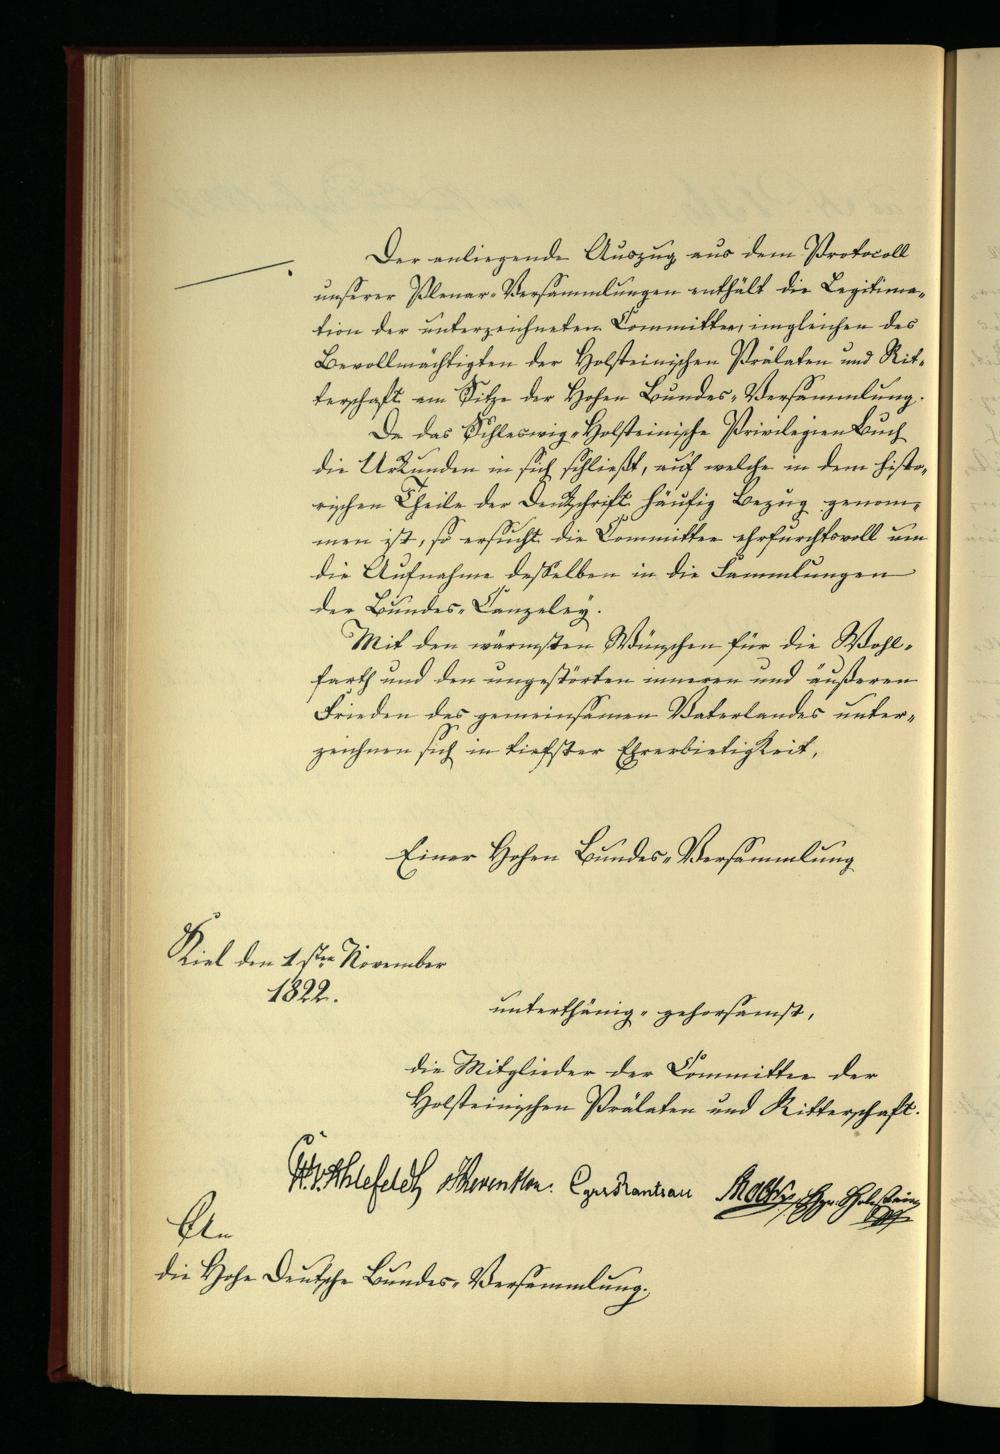 Der anliegende Auszug aus dem Protocoll
unserer Plenar-Versammlungen enthält die Legitima-
tion der unterzeichneten Committee, imgleichen des
Bevollmächtigten der Holsteinischen Prälaten und Rit-
terschaft am Sitze der Hohen Bundes-Versammlung.
Da das Schleswig-Holsteinische Privilegien Buch
die Urkunden in sich schließt, auf welche in dem histo-
rischen Theile der Denkschrift häufig Bezug genom-
men ist, so ersucht die Committee ehrfurchtsvoll um
die Aufnahme desselben in die Sammlungen
der Bundes-Canzeley.
Mit den wärmsten Wünschen für die Wohl-
farth und den ungestörten inneren und äußeren
Frieden des gemeinsamen Vaterlandes unter-
zeichnen sich in tiefster Ehrerbietigkeit,
Einer Hohen Bundes-Versammlung
Kiel den 1sten November
1822.
unterthänig-gehorsamst,
die Mitglieder der Committee der
Holsteinischen Prälaten und Ritterschaft.
v. Ahlefeldt Reventlou. Rantzau Moltke Holstein
An
die Hohe Deutsche Bundes-Versammlung.